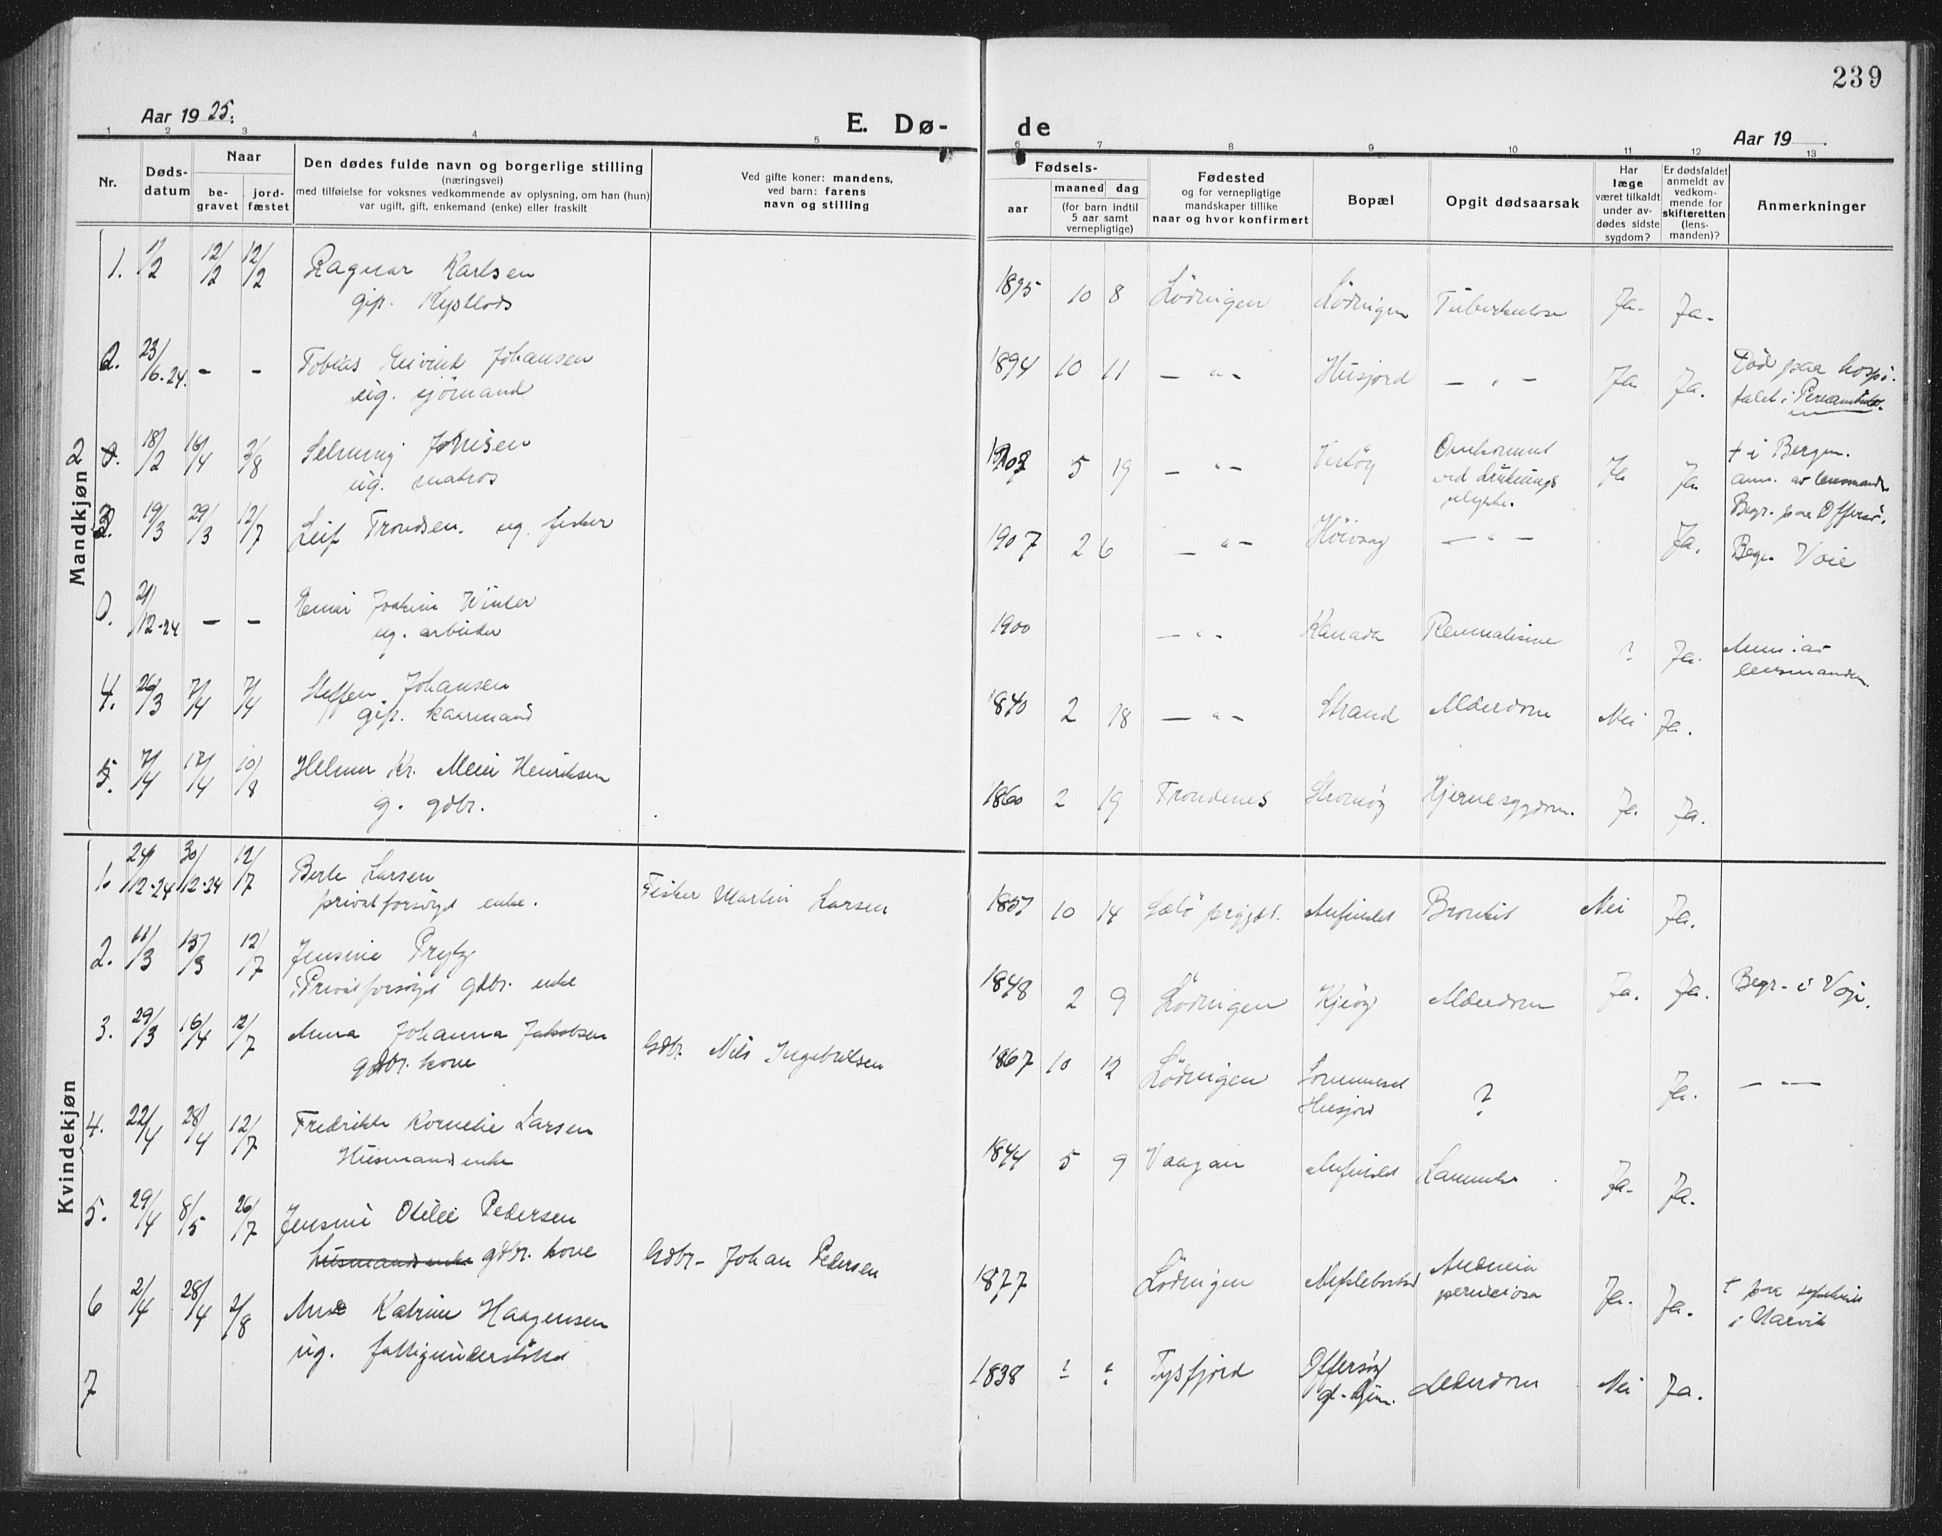 239
Aar 1925.
E. Dø-
de
Aar 19
1 2 3 4 5 6 7 8 9 10 11 12 13
Nr.
Døds-
datum
Naar
be-
gravet
jord-
fæstet
Den dødes fulde navn og borgerlige stilling
(næringsvei)
med tilføielse for voksnes vedkommende av oplysning, om han (hun)
var ugift, gift, enkemand (enke) eller fraskilt
Ved gifte koner: mandens,
ved barn: farens
navn og stilling
Fødsels-
aar
maaned dag
(for barn indtil
5 aar samt
vernepligtige)
Fødested
og for vernepligtige
mandskaper tillike
naar og hvor konfirmert
Bopæl
Opgit dødsaarsak
Har
læge
været tilkaldt
under av-
dødes sidste
sygdom?
Er dødsfaldet
anmeldt av
vedkom-
mende for
skifteretten
(lens-
manden)?
Anmerkninger
Mandkjøn 2
1. 12/2 12/2 Ragnar Karlsen 1895 10 8 Lödingen Lödingen Tuberkulose Ja. Ja.
gift.
0. 23/16-24. - - Tobias Eivind Johansen 1894 10 11 — " — Husjord — " — Ja Ja. Död paa hospi-
ug. sjömand talet i
18/2 16/4 3/8 Johnsen 5 19 — " — Omkommet Ja Ja † i Bergen.
ug. matros ved anm. av lensmanden
ulykke. Begr. paa Offersö.
19/3 29/3 12/7 Leif Trondsen. ug. fisker 1907 2 6 — " — — " — Ja. Begr. Voie
0. 21/12-24 — — Joakim Winter 1900 — " — Kanada ? Ja. Anm. av
ug. arbeider lensmanden.
4. 26/3 7/4 7/4 Steffen Johansen 1840 2 18 — " — Strand Alderdom Nei Ja.
gift. kaarmand
5. 7/4 17/4 10/8 Helmer Kr. Meier Henriksen 1860 2 19 Trondenes Hjernesygdom. Ja. Ja.
g. gdbr.
Kvindekjøn
1. 24/12-24 30/12-24 12/7 Berte Larsen Fisker Martin Larsen 1857 10 14 Bronkit Nei Ja.
privatforsörget enke.
2. 11/3 12/7 Jensine Prytz 1848 2 9 Lödingen Kjeöy Alderdom Ja. Ja. Begr. i Voje.
Privatforsörget gdbr. enke
3. 29/3 16/4 12/7 Anna Johanna Jakobsen Gdbr. Nils Ingebretsen 1867 10 12 Lödingen ? Ja. — —
gdbr. kone Husjord
4. 22/4 28/4 12/7 Fredrikke Kornelie Larsen 1844 5 9 Vaagan Ja. Ja.
Husmandsenke
5. 29/4 8/5 26/7 Jensine Otilie Pedersen Gdbr. Johan Pedersen 1877 Lödingen Anæmia Ja. Ja. † paa
husmandsenke gdbr. kone perniciosa i Narvik
6 2/4 28/4 2/8 Ane Katrine Haagensen 1838 ? ? Tysfjord Offersöy Alderdom Nei Ja.
ug. fattigunderstöttet
7